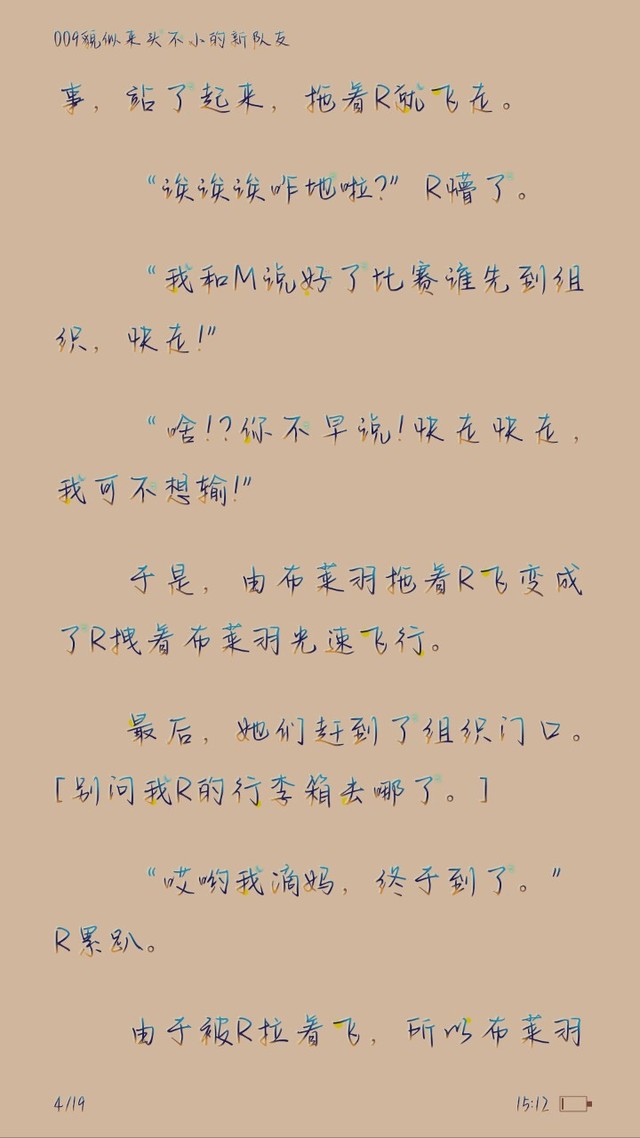 009貌似来头不小的新队友
事，站了起来，拖着R就飞走。
“诶诶诶咋地啦?” R懵了。
“我和M说好了比赛谁先到组
织，快走!”
“啥!?你不早说!快走快走，
我可不想输!”
于是，由布莱羽拖着R飞变成
了R拽着布莱羽光速飞行。
最后，她们赶到了组织门口。
[别问我R的行李箱去哪了。]
“哎哟我滴妈，终于到了。”
R累趴。
由于被R拉着飞，所以布莱羽
4/19
15:12